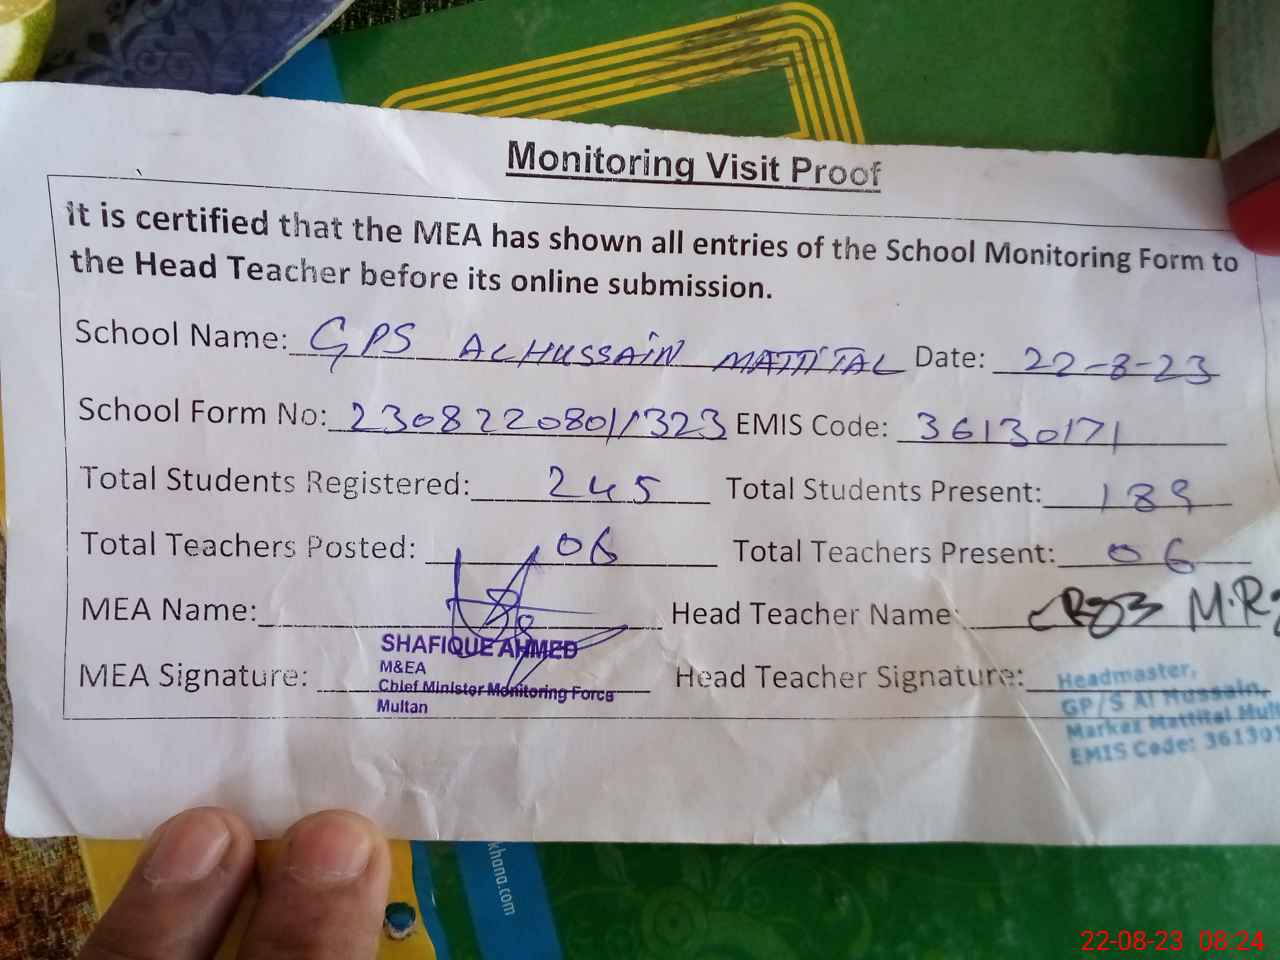 Monitoring Visit Proof
It is certified that the MEA has shown all entries of the School Monitoring Form to
the Head Teacher before its online submission.
School Name: GPS ALHUSSAIN MATTITAL Date: 22-8-23
School Form No: 23082208011323 EMIS Code: 36130171
Total Students Registered: 245 Total Students Present: 189
Total Teachers Posted: 06 Total Teachers Present: 06
MEA Name: Head Teacher Name: M.R
SHAFIQUE AHMED
M&EA
MEA Signature: Chief Minister Monitoring Force Head Teacher Signature:
Multan
Headmaster,
GP/S Al Hussain,
Markaz Mattital Mult
EMIS Code: 361301
khana.com
22-08-23 08:24